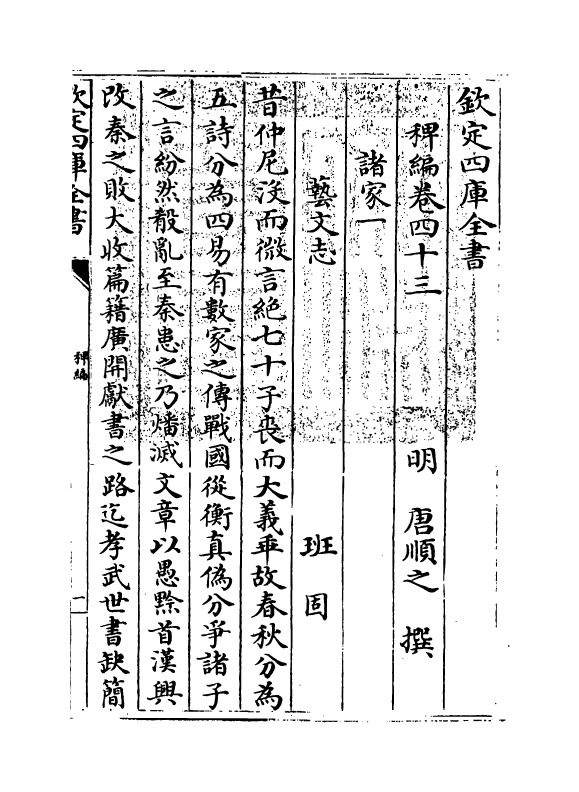 欽定四庫全書
稗編卷四十三　明　唐順之　撰
諸家一
藝文志　班固
昔仲尼沒而微言絕七十子喪而大義乖故春秋分為
五詩分為四易有數家之傳戰國從衡真偽分爭諸子
之言紛然殽亂至秦患之乃燔滅文章以愚黔首漢興
改秦之敗大收篇籍廣開獻書之路迄孝武世書缺簡
欽定四庫全書
稗編
一